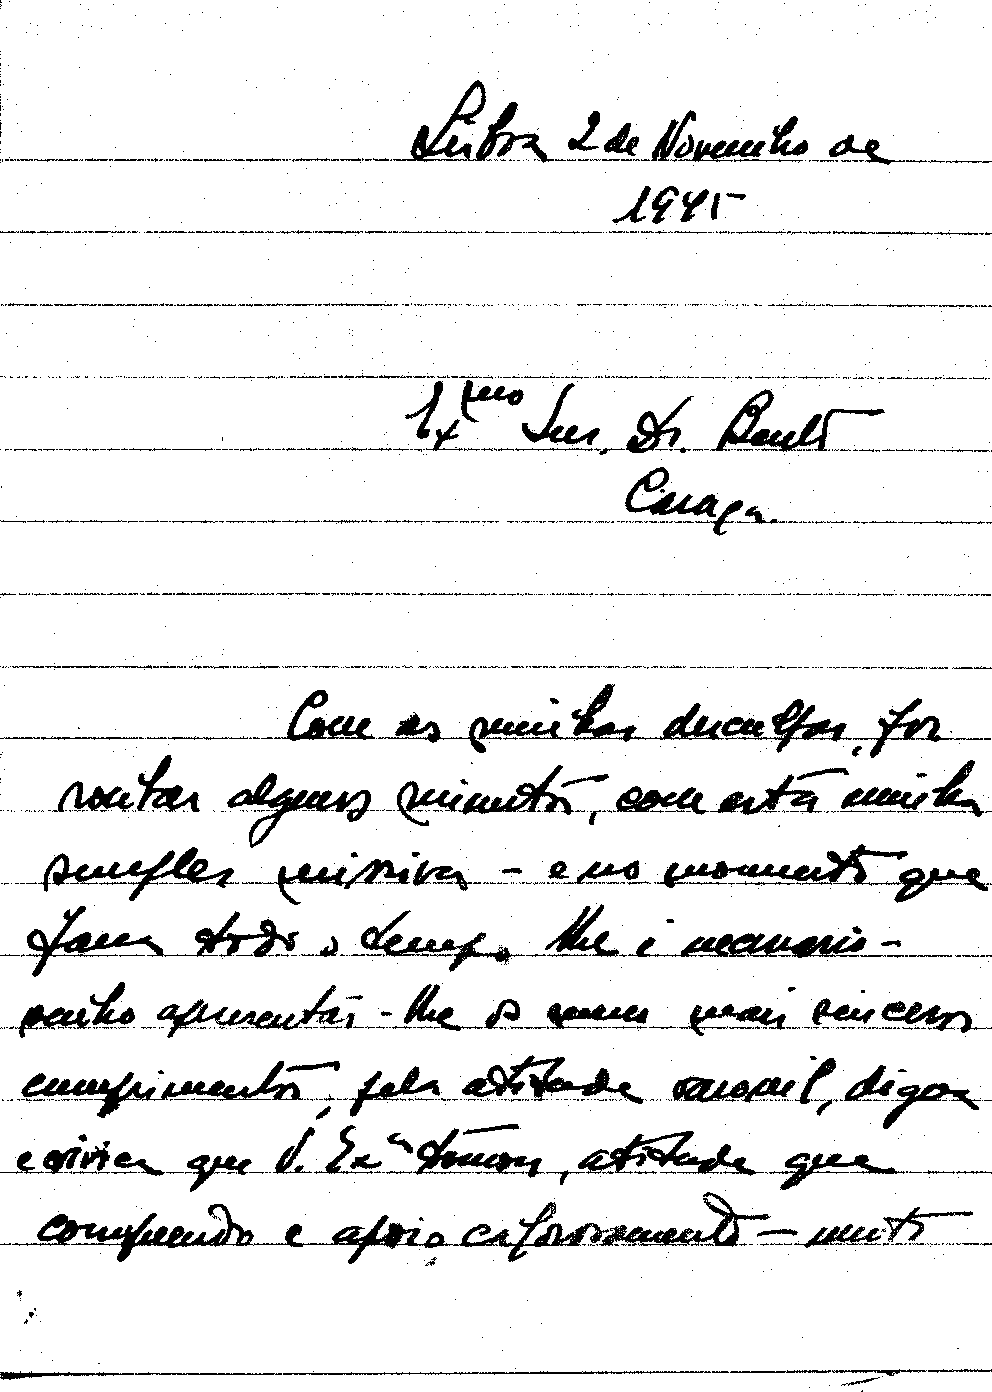 Lisboa 2 de Novembro de
1945
Exmo Snr. Dr. Bento
Caraça.
Com as minhas desculpas, por
roubar alguns minutos, com esta minha
simples missiva – e no momento que
para todo o tempo lhe é necessário –
venho apresentar-lhe os meus mais sinceros
cumprimentos, pela atitude varonil, digna
e cívica que V. Exª tomou, atitude que
compreendo e apoio calorosamente – muito